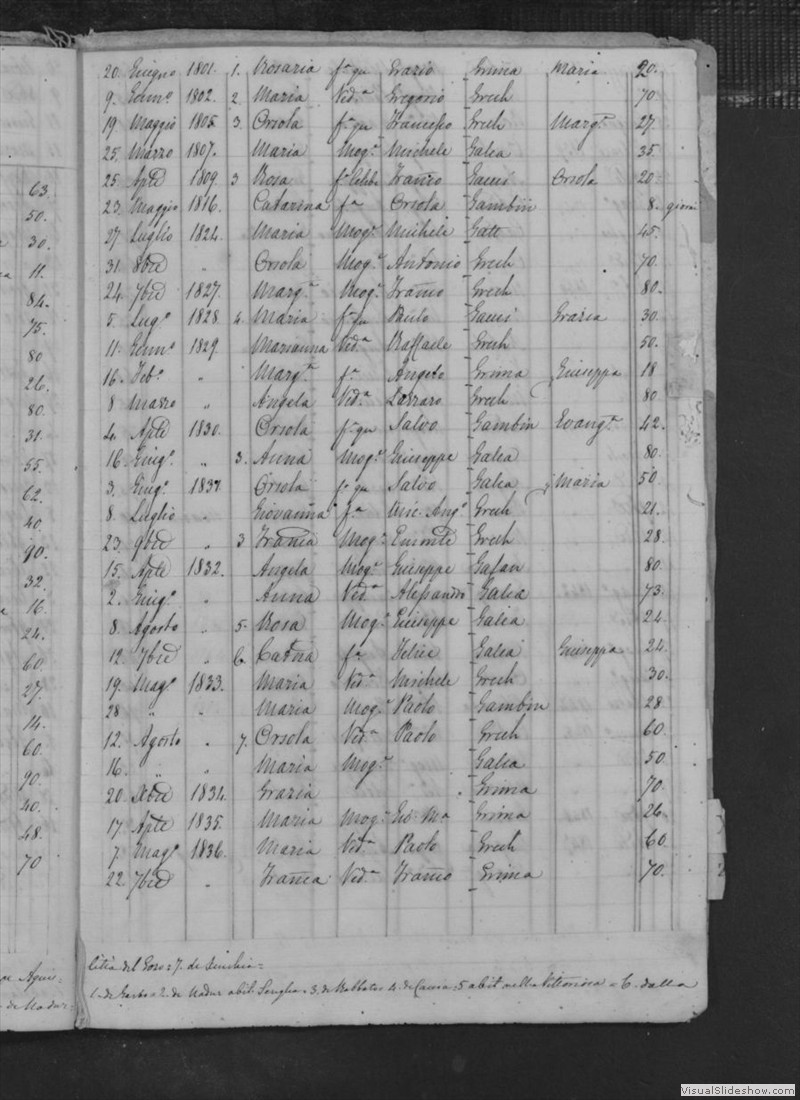 63.
50.
30.
11.
84.
75.
80
26.
80.
31.
55.
62.
40.
90.
32.
16.
24.
60
27.
14.
60.
90.
40.
48.
70
20. Giugno 1801. 1. Rosaria f.a qu Grazio Grima Maria 20.
9. Genn.o 1802. 2. Maria Ved.a Gregorio Grech 70
19 Maggio 1805 3. Orsola f.a qu Francesco Grech Marg.a 27.
25. Marzo 1807. Maria Mog.e Michele Galea 35.
25 Aple 1809. 3 Rosa Orsola 20
23. Maggio 1816. Catarina f.a Orsola Gambin 8. giorni
27 Luglio 1824. Maria Mog.e Michele 45.
31. 8bre " Orsola Mog.e Antonio Grech 70.
24. 7bre 1827. Marg.a Mog.e Franco Grech 80.
5. Lug.o 1828. 4. Maria f.a qu Paolo Grazia 30
11. Genn.o 1829. Marianna Ved.a Raffaele Grech 50.
16. Feb.o " Marg.a f.a Angelo Grima Giuseppa 18
8 Marzo " Angela Ved.a Lazzaro Grech 80
4. Aple 1830. Orsola f.a qu Salvo Gambin Evang.a 42.
16. Giug.o " 3. Anna Mog.e Giuseppe Galea 80.
3. Giug.o 1831. Orsola f.a qu Salvo Galea Maria 50
8. Luglio " Giovanna f.a Mic. Ang.o Grech 21.
23. 9bre " 3 Franca Mog.e Grech 28.
15. Aple 1832. Angela Mog.e Giuseppe 80.
2. Giug.o " Anna Ved.a Alessandro Galea 73.
8. Agosto " 5. Rosa Mog.e Giuseppe Galea 24.
12. 7bre " 6. Catna f.a Felice Galea Giuseppa 24.
19. Mag.o 1833. Maria Ved.a Michele Grech 30.
28 " " Maria Mog.e Paolo Gambin 28
12. Agosto " 7. Orsola Ved.a Paolo Grech 60.
16. " " Maria Mog.e Galea 50.
20. Xbre 1834. Grazia Grima 70.
17. Aple 1835. Maria Mog.e Gio Ma Grima 26.
7. Mag.o 1836. Maria Ved.a Paolo Grech 60.
22. 7bre " Franca Ved.a Franco Grima 70.
del Gozo 7. de
1. de Garbo 2. de Nadur abit. Senglea 3. de Rabbato 4. de 5 abit nella Vittoriosa 6. dalla
de Nadur
VisualSlideshow.com